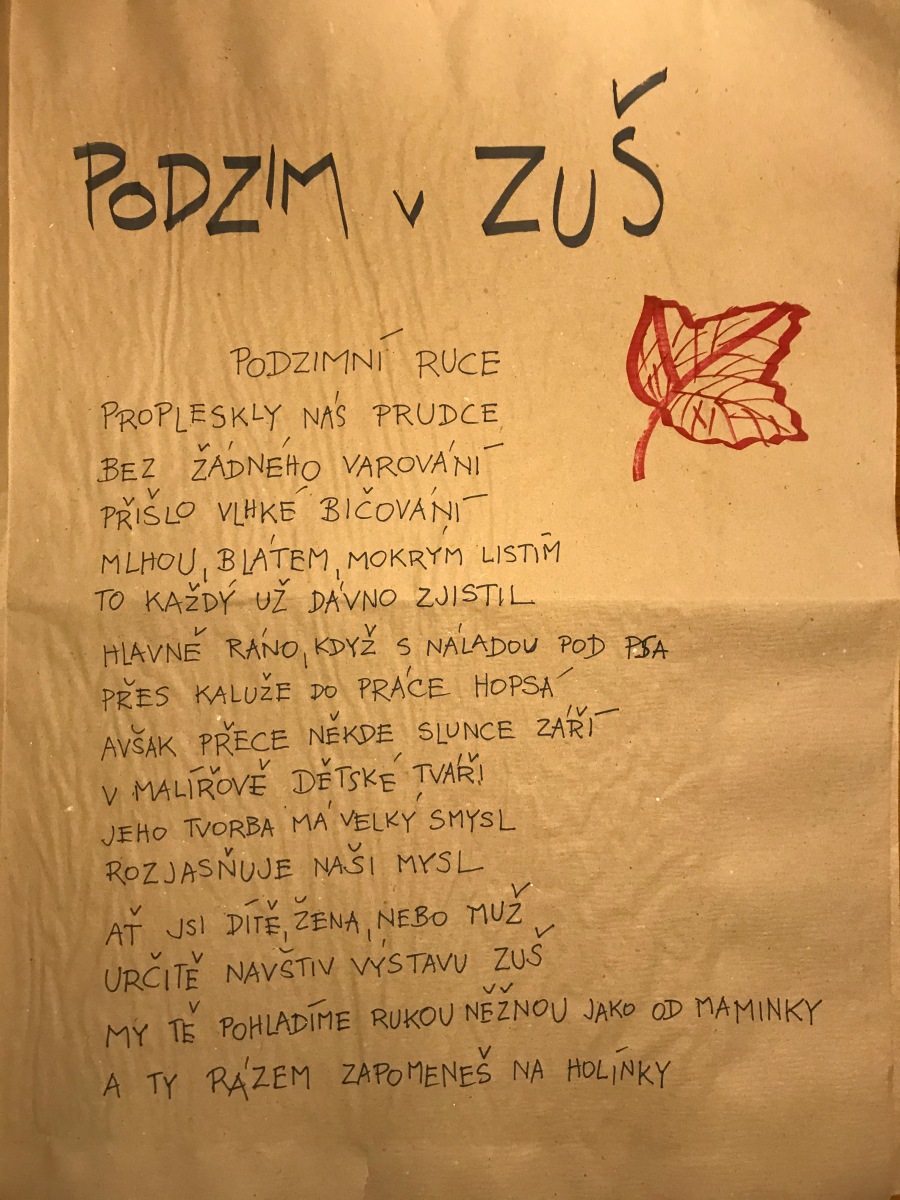 PODZIM v ZUŠ
PODZIMNÍ RUCE
PROPLESKLY NÁS PRUDCE
BEZ ŽÁDNÉHO VAROVÁNÍ
PŘIŠLO VLHKÉ BIČOVÁNÍ
MLHOU, BLÁTEM, MOKRÝM LISTÍM
TO KAŽDÝ UŽ DÁVNO ZJISTIL
HLAVNĚ RÁNO, KDYŽ S NÁLADOU POD PSA
PŘES KALUŽE DO PRÁCE HOPSÁ
AVŠAK PŘECE NĚKDE SLUNCE ZÁŘÍ
V MALÍŘOVĚ DĚTSKÉ TVÁŘI
JEHO TVORBA MÁ VELKÝ SMYSL
ROZJASŇUJE NAŠI MYSL
AŤ JSI DÍTĚ, ŽENA, NEBO MUŽ
URČITĚ NAVŠTIV VÝSTAVU ZUŠ
MY TĚ POHLADÍME RUKOU NĚŽNOU JAKO OD MAMINKY
A TY RÁZEM ZAPOMENEŠ NA HOLÍNKY